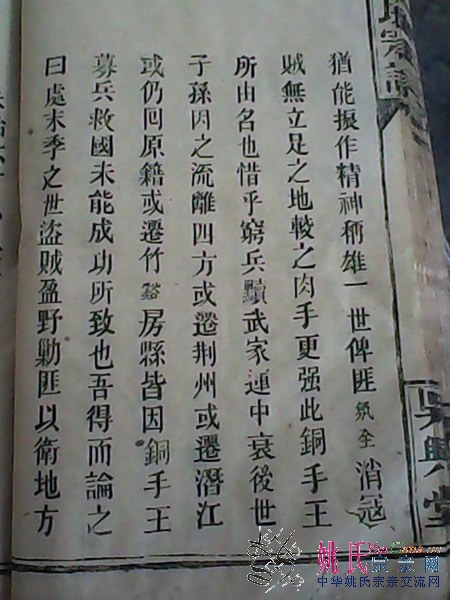 猶能振作精神稱雄一世俾匪氛全消寇
賊無立足之地較之肉手更强此銅手王
所由名也惜乎窮兵黷武家運中衰後世
子孫因之流離四方或遷荆州或遷潛江
或仍回原籍或遷竹谿房縣皆因銅手王
募兵救國未能成功所致也吾得而論之
曰處末季之世盜賊盈野勦匪以衛地方
吳興堂
姚氏宗亲网
中华姚氏宗亲交流网